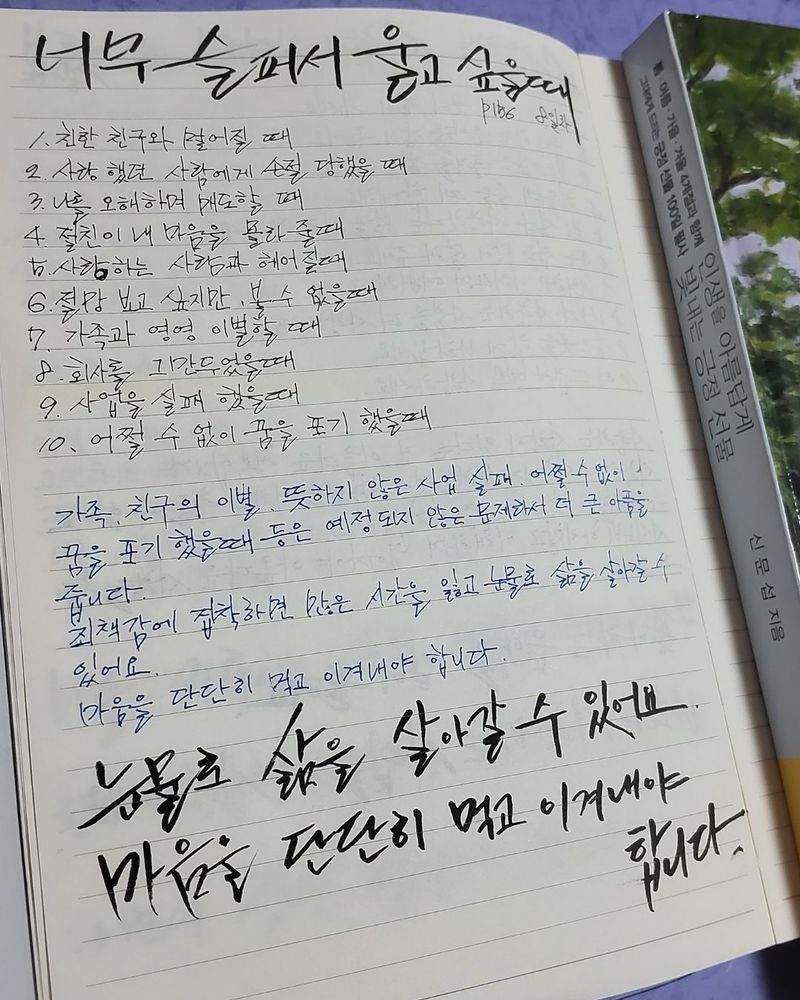 너무 슬퍼서 울고 싶을때
P156 8일차
1. 친한 친구와 멀어질 때
2. 사랑 했던 사람에게 손절 당했을 때
3. 나를 오해하며 매도할 때
4. 절친이 내 마음을 몰라 줄때
5. 사랑하는 사람과 헤어질때
6. 절망 보고 싶지만, 볼 수 없을때
7. 가족과 영영 이별할 때
8. 회사를 그만두었을때
9. 사업을 실패 했을때
10. 어쩔 수 없이 꿈을 포기 했을때
가족, 친구의 이별, 뜻하지 않은 사업 실패, 어쩔 수 없이
꿈을 포기 했을때 등은 예정되지 않은 문제라서 더 큰 아픔을
줍니다.
죄책감에 집착하면 많은 시간을 잃고 눈물로 삶을 살아갈 수
있어요.
마음을 단단히 먹고 이겨내야 합니다.
눈물로 삶을 살아갈 수 있어요.
마음을 단단히 먹고 이겨내야
합니다.
봄·여름·가을·겨울 4계절과 함께
긍정 선물 100일 필사
인생을 아름답게
빛내는 긍정 선물
신문섭 지음